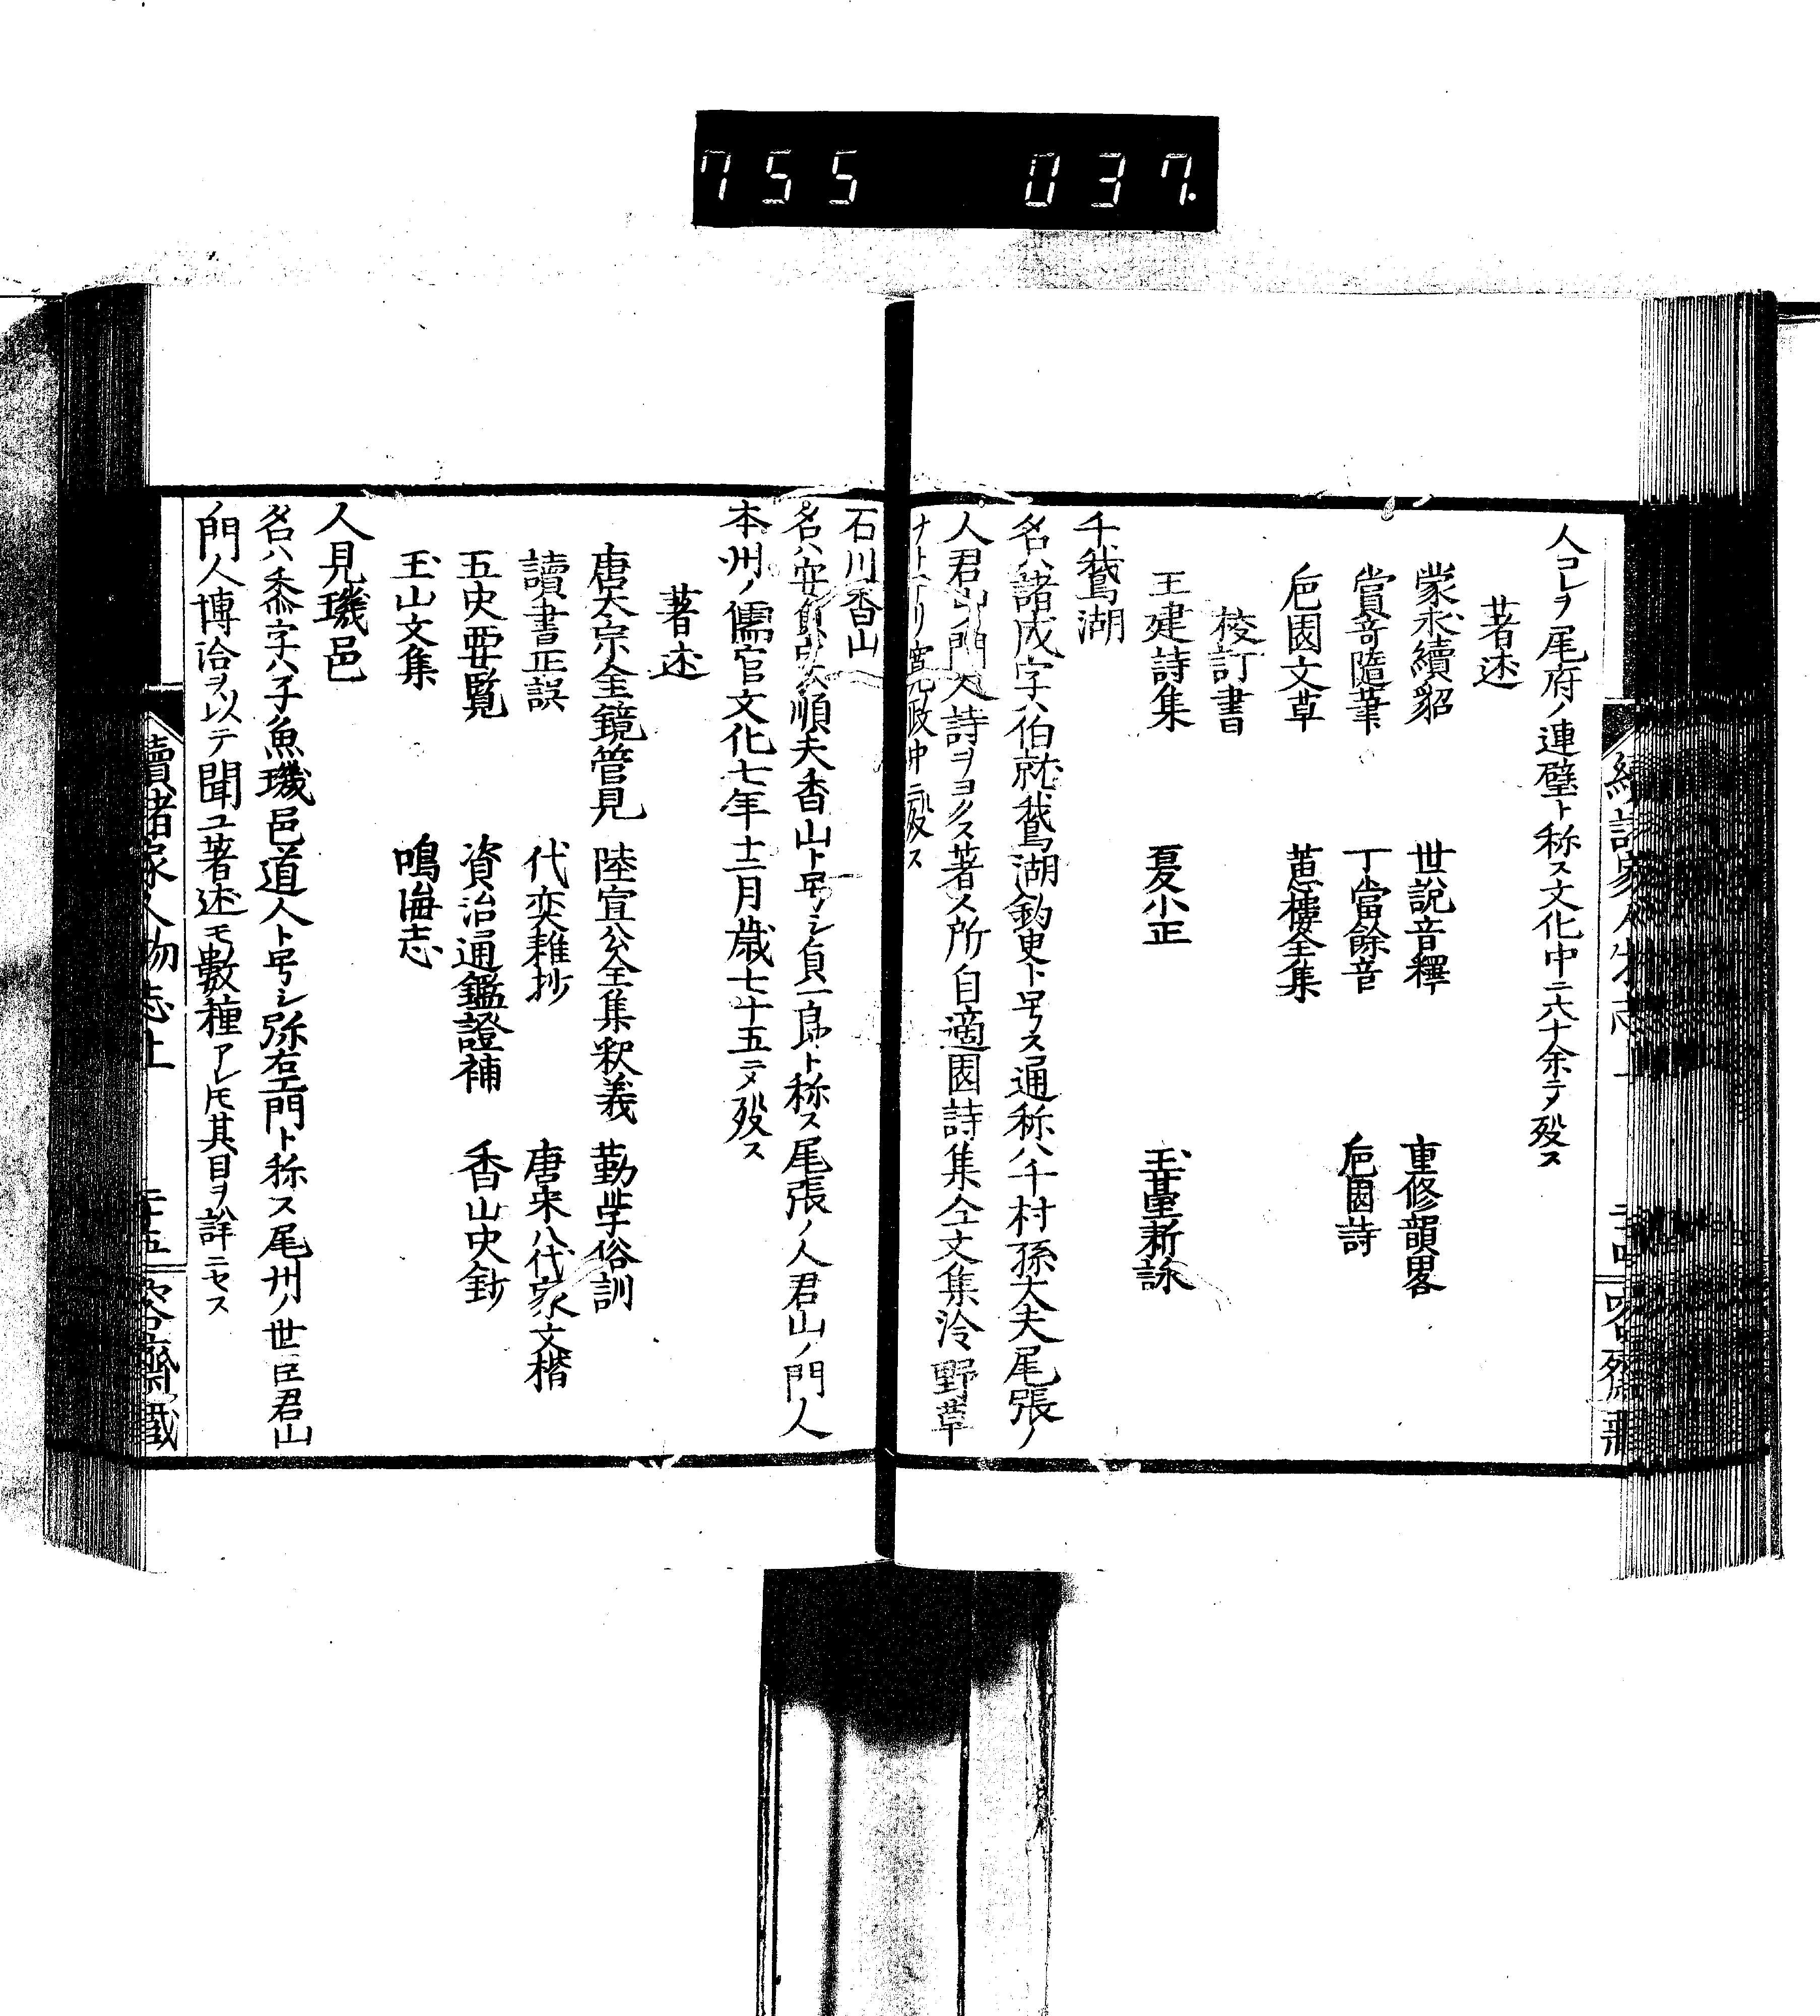 755 037.
人コレヲ尾府ノ連璧ト称ス文化中ニ六十余ニテ歿ス
著述
蒙求續貂 世説音釋 重修韻畧
賞奇隨筆 丁當餘音 巵園詩
巵園文草 蕙樓全集
校訂書
王建詩集 夏小正 玉䑓新詠
千鵞湖
名ハ諸成字ハ伯就鵞湖釣叟ト号ス通称ハ千村孫大夫尾張ノ
人君山ノ門人詩ヲヨクス著ス所自適園詩集仝文集泠野草
ナトアリ寛政中ニ歿ス
石川香山
名ハ安貞字ハ順夫香山ト号シ貞一郎ト称ス尾張ノ人君山ノ門人
本州ノ儒官文化七年十二月歳七十五ニテ歿ス
著述
唐太宗金鏡管見 陸宣公全集釈義 勤学俗訓
讀書正誤 代奕雜抄 唐宋八代家文楷
五史要覧 資治通鑑證補 香山史鈔
玉山文集 鳴海志
人見璣邑
名ハ桼字ハ子魚璣邑道人ト号シ弥右エ門ト称ス尾州ノ世臣君山
門人博洽ヲ以テ聞ユ著述モ數種アレ𪜈其目ヲ詳ニセス
續諸家人物志上 二十五 容齋蔵